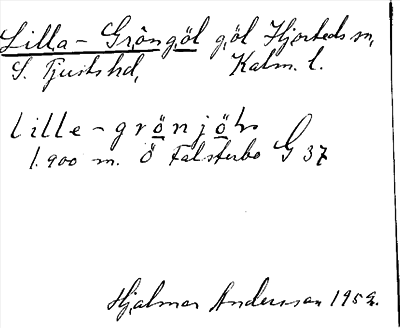 Lilla-Gröngöl göl Hjorteds sn,
S. Tjusts hd, Kalm. l.
lille-grönjöln
1.900 m. Ö Falsterbo G 37
Hjalmar Andersson 1952.